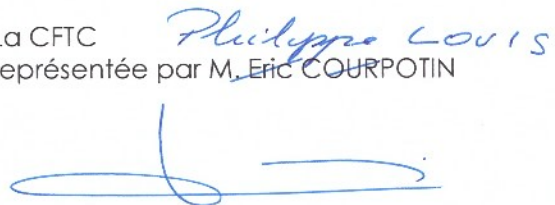 La CFTC Philippe LOUIS
représentée par M. Eric COURPOTIN